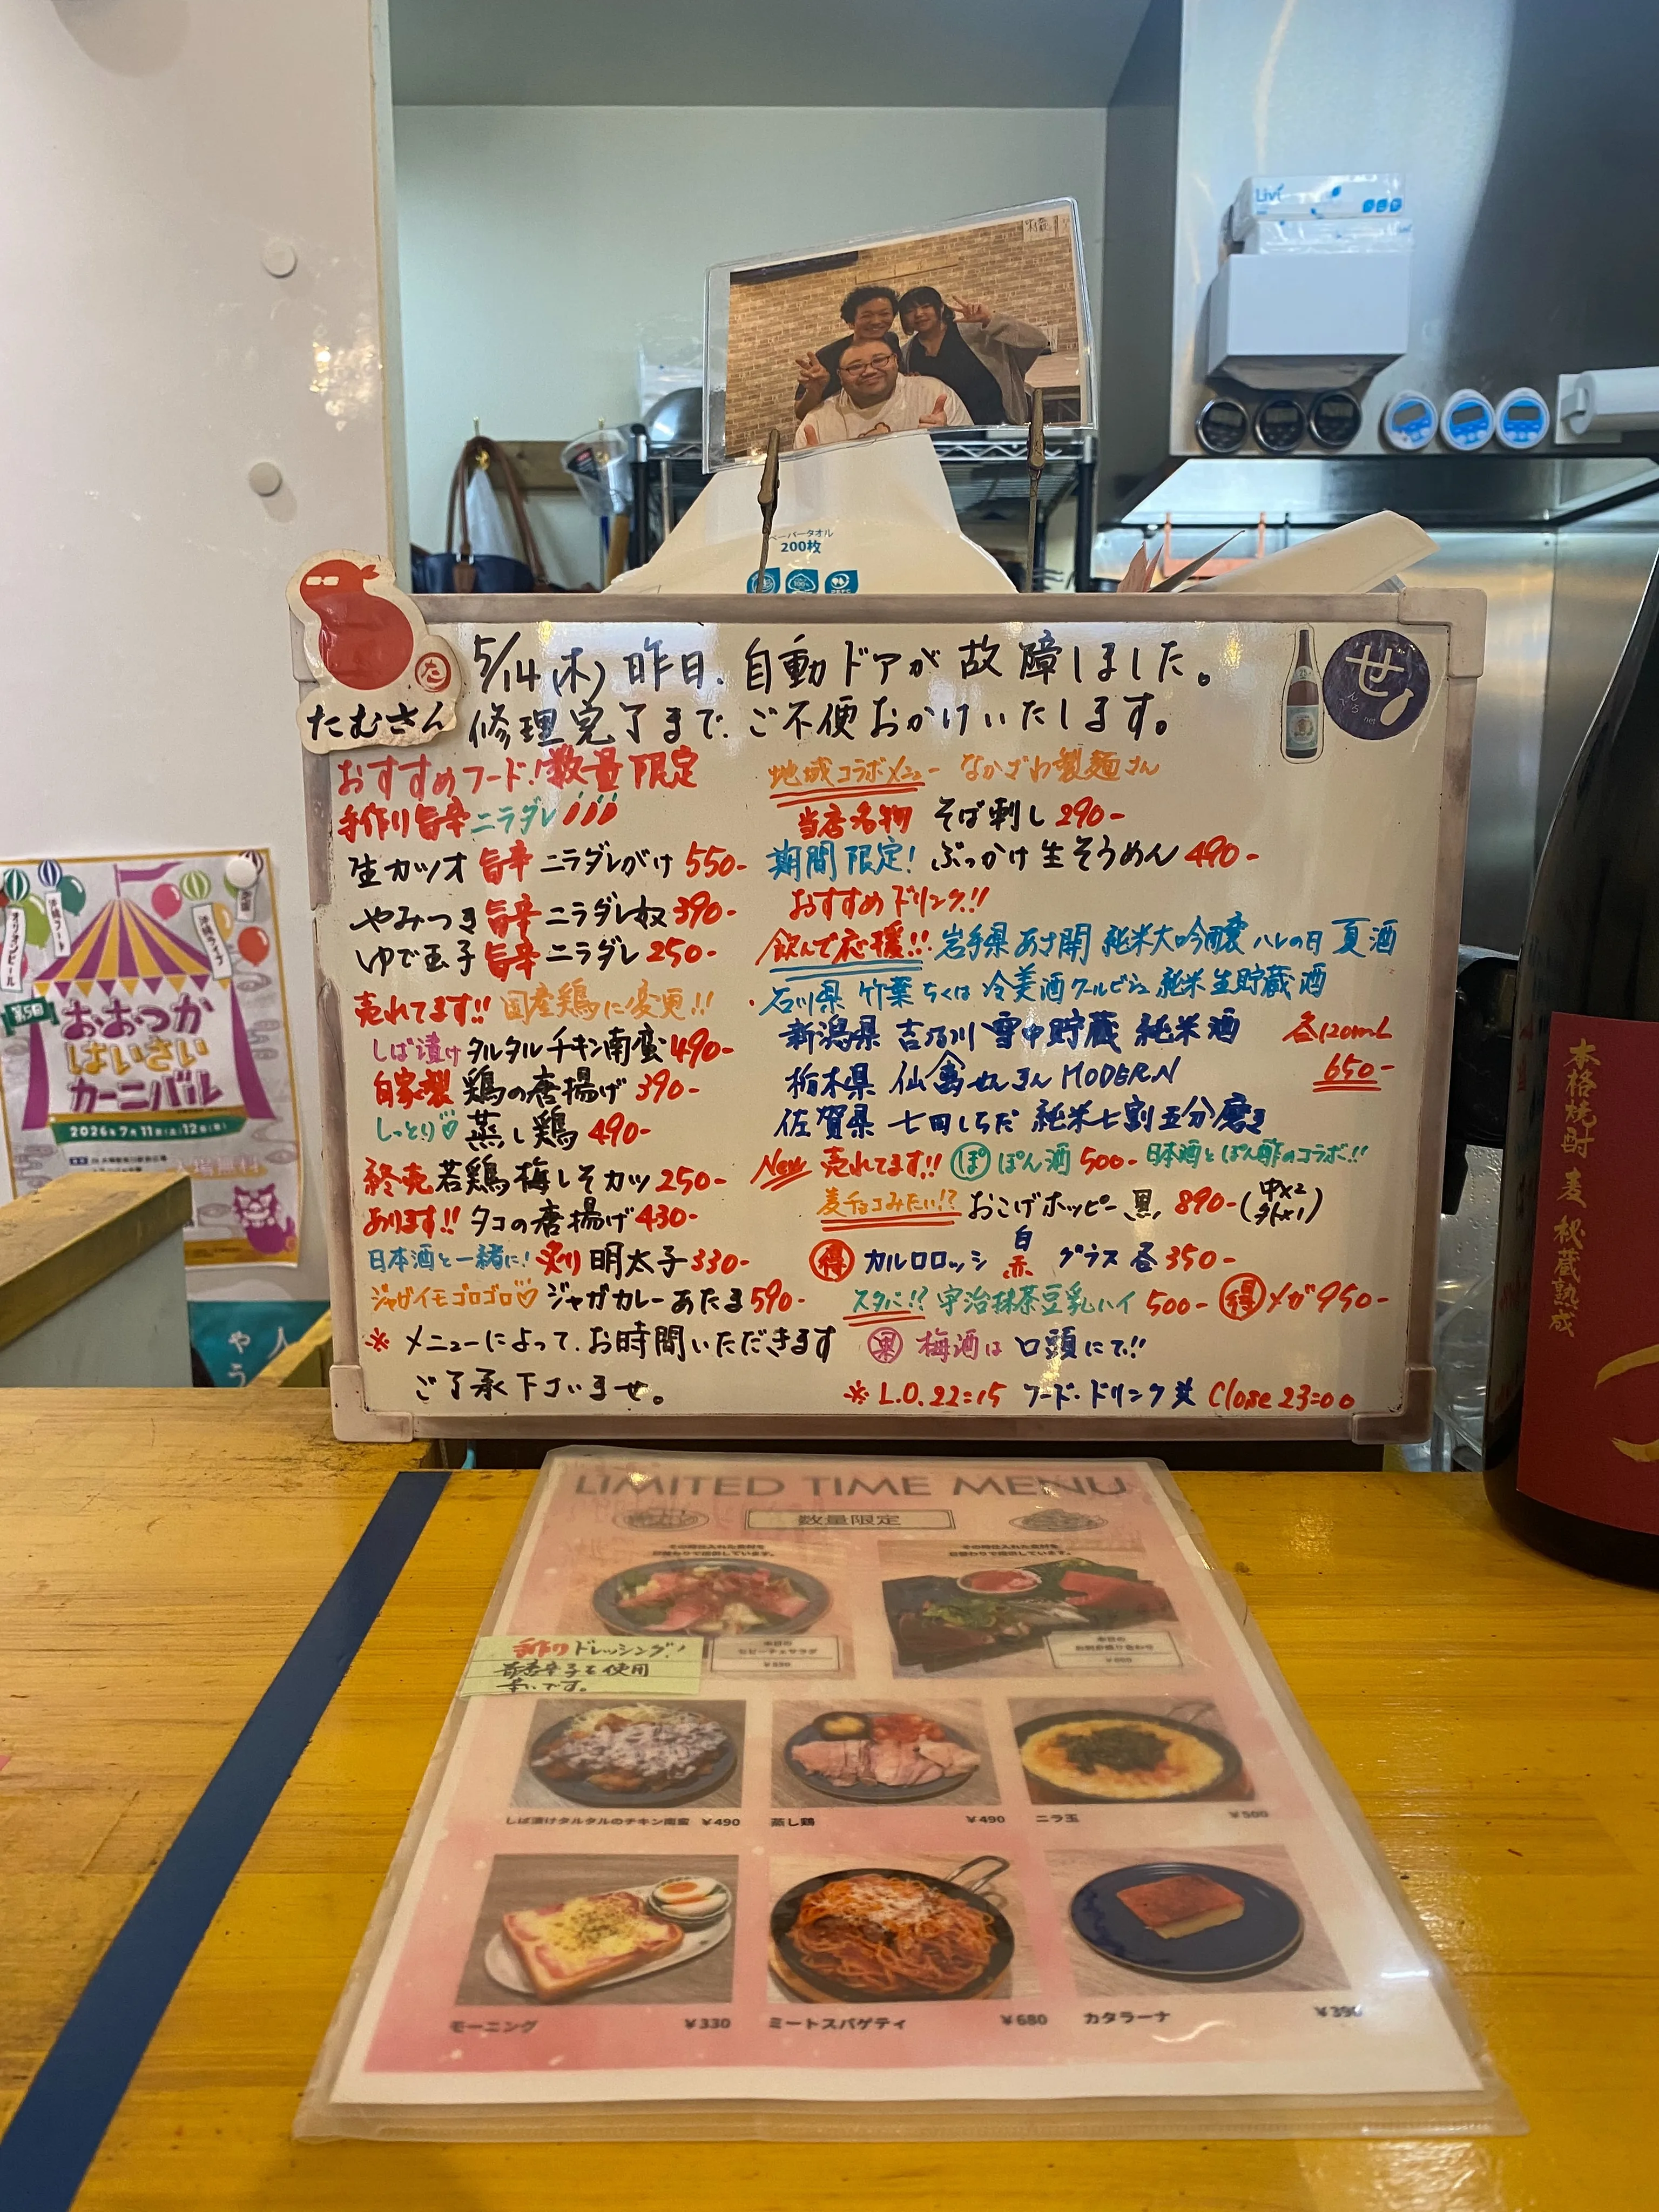 Livi
ペーパータオル
200枚
たむさん
た
せ
5/14(木) 昨日、自動ドアが故障しました。
修理完了まで、ご不便おかけいたします。
おすすめフード!数量限定
手作り旨辛ニラダレ!!!
生カツオ 旨辛 ニラダレがけ 550-
やみつき旨辛ニラダレ奴 390-
ゆで玉子 旨辛 ニラダレ 250-
売れてます!! 国産鶏に変更!!
しば漬けタルタルチキン南蛮 490-
自家製 鶏の唐揚げ 390-
しっとり♡ 蒸し鶏 490-
終売 若鶏梅しそカツ 250-
あります!! タコの唐揚げ 430-
日本酒と一緒に! 炙り明太子 330-
ジャガイモゴロゴロ♡ ジャガカレーあたま 590-
※ メニューによって、お時間いただきます
ご了承下さいませ。
地域コラボメニュー なかざわ製麺さん
当店名物 そば刺し 290-
期間限定! ぶっかけ生そうめん 490-
おすすめドリンク!!
飲んで応援!! 岩手県 あさ開 純米大吟醸 ハレの日 夏酒
石川県 竹葉 ちくは 冷美酒クールビジュ 純米生貯蔵酒
新潟県 吉乃川 雪中貯蔵 純米酒 各120mL
栃木県 仙禽 せんきん MODERN 650-
佐賀県 七田しちだ 純米七割五分磨き
New 売れてます!! ぽ ぽん酒 500- 日本酒とぽん酢のコラボ!!
麦チョコみたい!? おこげホッピー黒 890- (中×2 外×1)
得 カルロロッシ 白 赤 グラス 各350-
スタバ!? 宇治抹茶豆乳ハイ 500- 得 メガ 950-
果 梅酒は 口頭にて!!
※ L.O. 22:15 フード・ドリンク共 Close 23:00
オリオンビール
沖縄フード
第5回
おおつか
はいさい
カーニバル
2026年7月11日(土)12日(日)
入場無料
本格焼酎 麦 秘蔵熟成
LIMITED TIME MENU
数量限定
その時仕入れた食材を
日替わりで提供しています。
その時仕入れた食材を
日替わりで提供しています。
本日の
本日の
手作りドレッシング!
を使用
です。
しば漬けタルタルのチキン南蛮 ¥490
蒸し鶏 ¥490
ニラ玉 ¥500
モーニング ¥330
ミートスパゲティ ¥680
カタラーナ ¥390